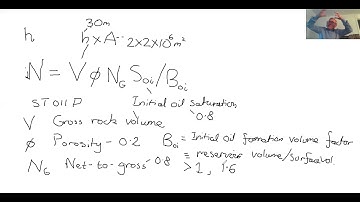 30m
h h x A -- 2x2x10⁶ m²
N = V φ N_G S_oi / B_oi
STOIIP Initial oil saturation 0.8
V Gross rock volume
φ Porosity - 0.2 B_oi = Initial oil formation volume factor
N_G Net-to-gross - 0.8 = reservoir volume/surface vol.
> 1, 1.6